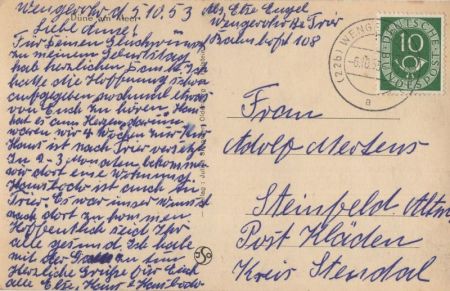 Wengerohr d. 5.10.53
Dune am Meer
Liebe Anne!
Für Deinen Glückwunsch
zu meinem Geburtstag
hab herzlichen Dank. Ich
hatte die Hoffnung schon
aufgegeben nochmal etwas
von Euch zu hören. Hans
hat es am Herzen, darum
waren wir 4 Wochen zur Kur
Hans ist nach Trier versetzt
In 2-3 Monaten bekommen
wir dort eine Wohnung.
Hans Bodo ist auch in
Trier. Es war unser Wunsch
nach dort zu kommen
Hoffentlich seid Ihr
alle gesund. Ich hatte
mit der
Herzliche Grüße für Euch
alle Else, Hans u. Hans Bodo
Abs. Else Engel
Wengerohr Bz Trier
Bahnhofst 108
(22b) WENGEROHR
-6.10.53
a
DEUTSCHE
10
BUNDESPOST
Frau
Adolf Mertens
Steinfeld Altm
Post Kläden
Kreis Stendal